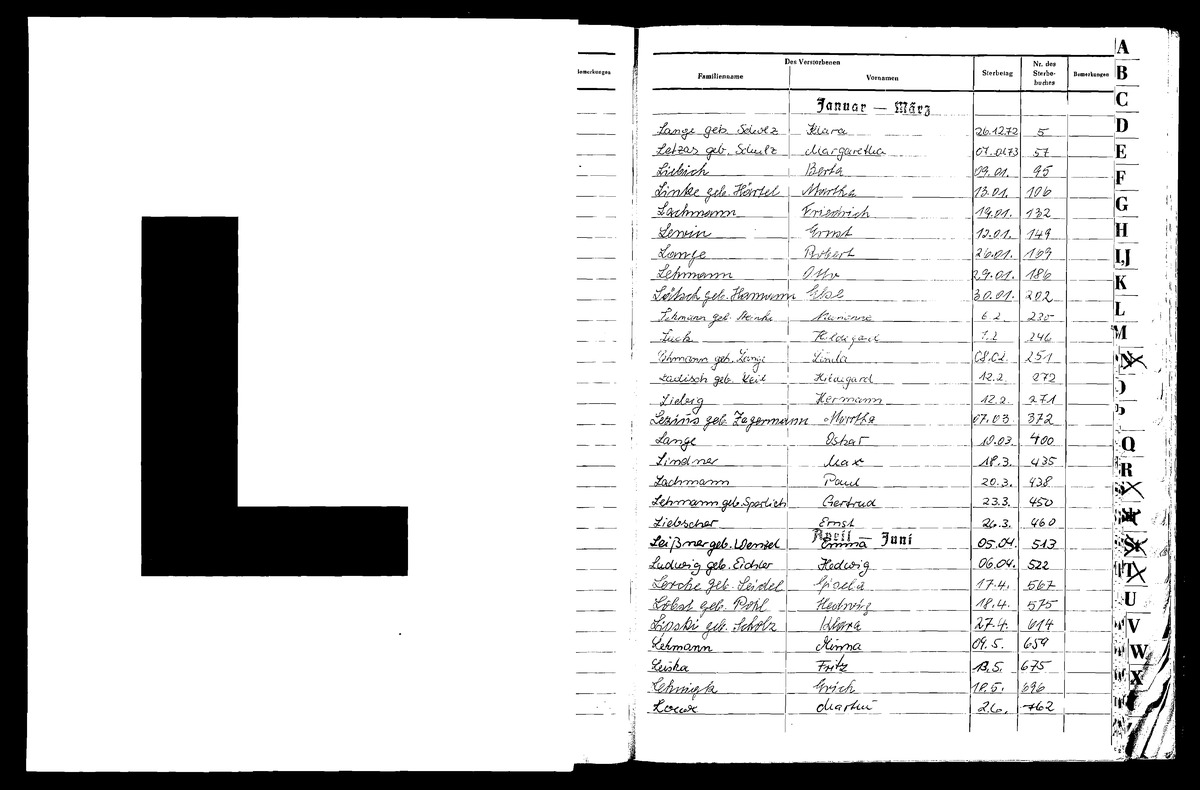 L
Bemerkungen
Des Verstorbenen
Familienname Vornamen Sterbetag Nr. des Sterbebuches Bemerkungen
Januar — März
Lange geb. Scholz Klara 26.12.72 5
Letzas geb. Schulz Margaretha 07.0173 57
Liebich Berta 09.01. 95
Linke geb. Härtel Martha 13.01. 106
Lachmann Friedrich 19.01. 132
Lewin Ernst 12.01. 149
Lange Robert 26.01. 169
Lehmann Otto 29.01. 186
Lötsch geb. Hamann Else 30.01. 202
geb. 6.2. 235
Luck Hildegard 7.2 246
geb. Lange Linda 08.02. 251
Ladisch geb. Keil Hildegard 12.2. 272
Liebig Hermann 12.2. 271
Lezius geb. Zagermann Martha 07.03 372
Lange Oskar 10.03. 400
Lindner Max 18.3. 435
Lachmann Paul 20.3. 438
Lehmann geb. Sperlich Gertrud 23.3. 450
Liebscher Ernst 26.3. 460
April — Juni
Leißner geb. Wenzel Emma 05.04. 513
Ludwig geb. Eichler Hedwig 06.04. 522
Lerche geb. Seidel Gisela 17.4. 567
Löbst geb. Pohl Hedwig 18.4. 575
Lipski geb. Scholz Klara 27.4. 614
Lehmann Minna 09.5. 659
Leiska Fritz 13.5. 675
Lehnigk Erich 18.5. 696
Loewe Martin 2.6. 762
A
B
C
D
E
F
G
H
I,J
K
L
M
N
O
P
Q
R
S
St
T
U
V
W
X